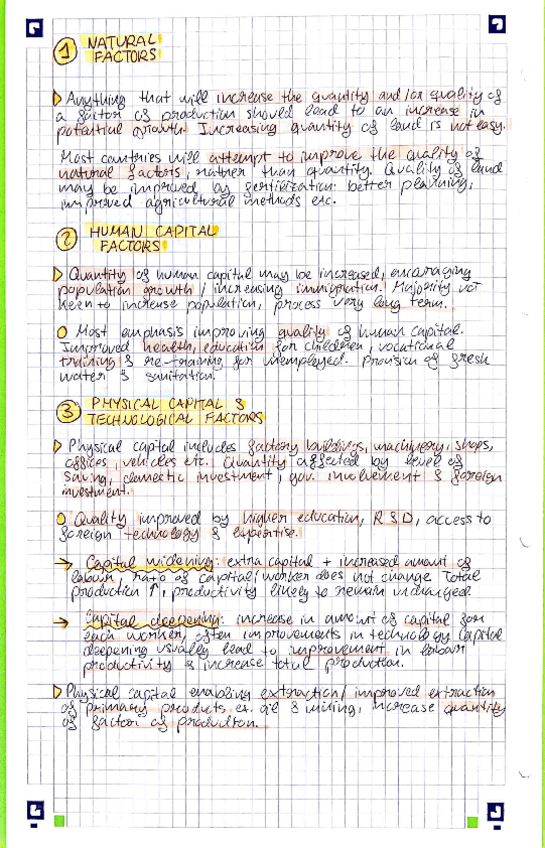 1 NATURAL
FACTORS
Anything that will increase the quantity and/or quality of
a factor of production should lead to an increase in
potential growth. Increasing quantity of land is not easy.
Most countries will attempt to improve the quality of
natural factors, rather than quantity. Quality of land
may be improved by fertilization. better planning,
improved agricultural methods etc.
2 HUMAN CAPITAL
FACTORS
Quantity of human capital may be increased, encouraging
population growth / increasing immigration. Majority not
keen to increase population, process very long term.
Most emphasis improving quality of human capital.
Improved health, education for children, vocational
training & re-training for unemployed. Provision of fresh
water & sanitation.
3 PHYSICAL CAPITAL &
TECHNOLOGICAL FACTORS
Physical capital includes factory buildings, machinery, shops,
offices, vehicles etc. Quantity affected by level of
saving, domestic investment, gov. involvement & foreign
investment.
Quality improved by higher education, R & D, access to
foreign technology & expertise.
→ Capital widening: extra capital + increased amount of
labour, ratio of capital/worker does not change. Total
production ↑, productivity likely to remain unchanged.
→ Capital deepening: increase in amount of capital for
each worker, often improvements in technology. Capital
deepening usually lead to improvement in labour
productivity & increase total production.
Physical capital enabling extraction / improved extraction
of primary products ex. oil & mining, increase quantity
of factor of production.